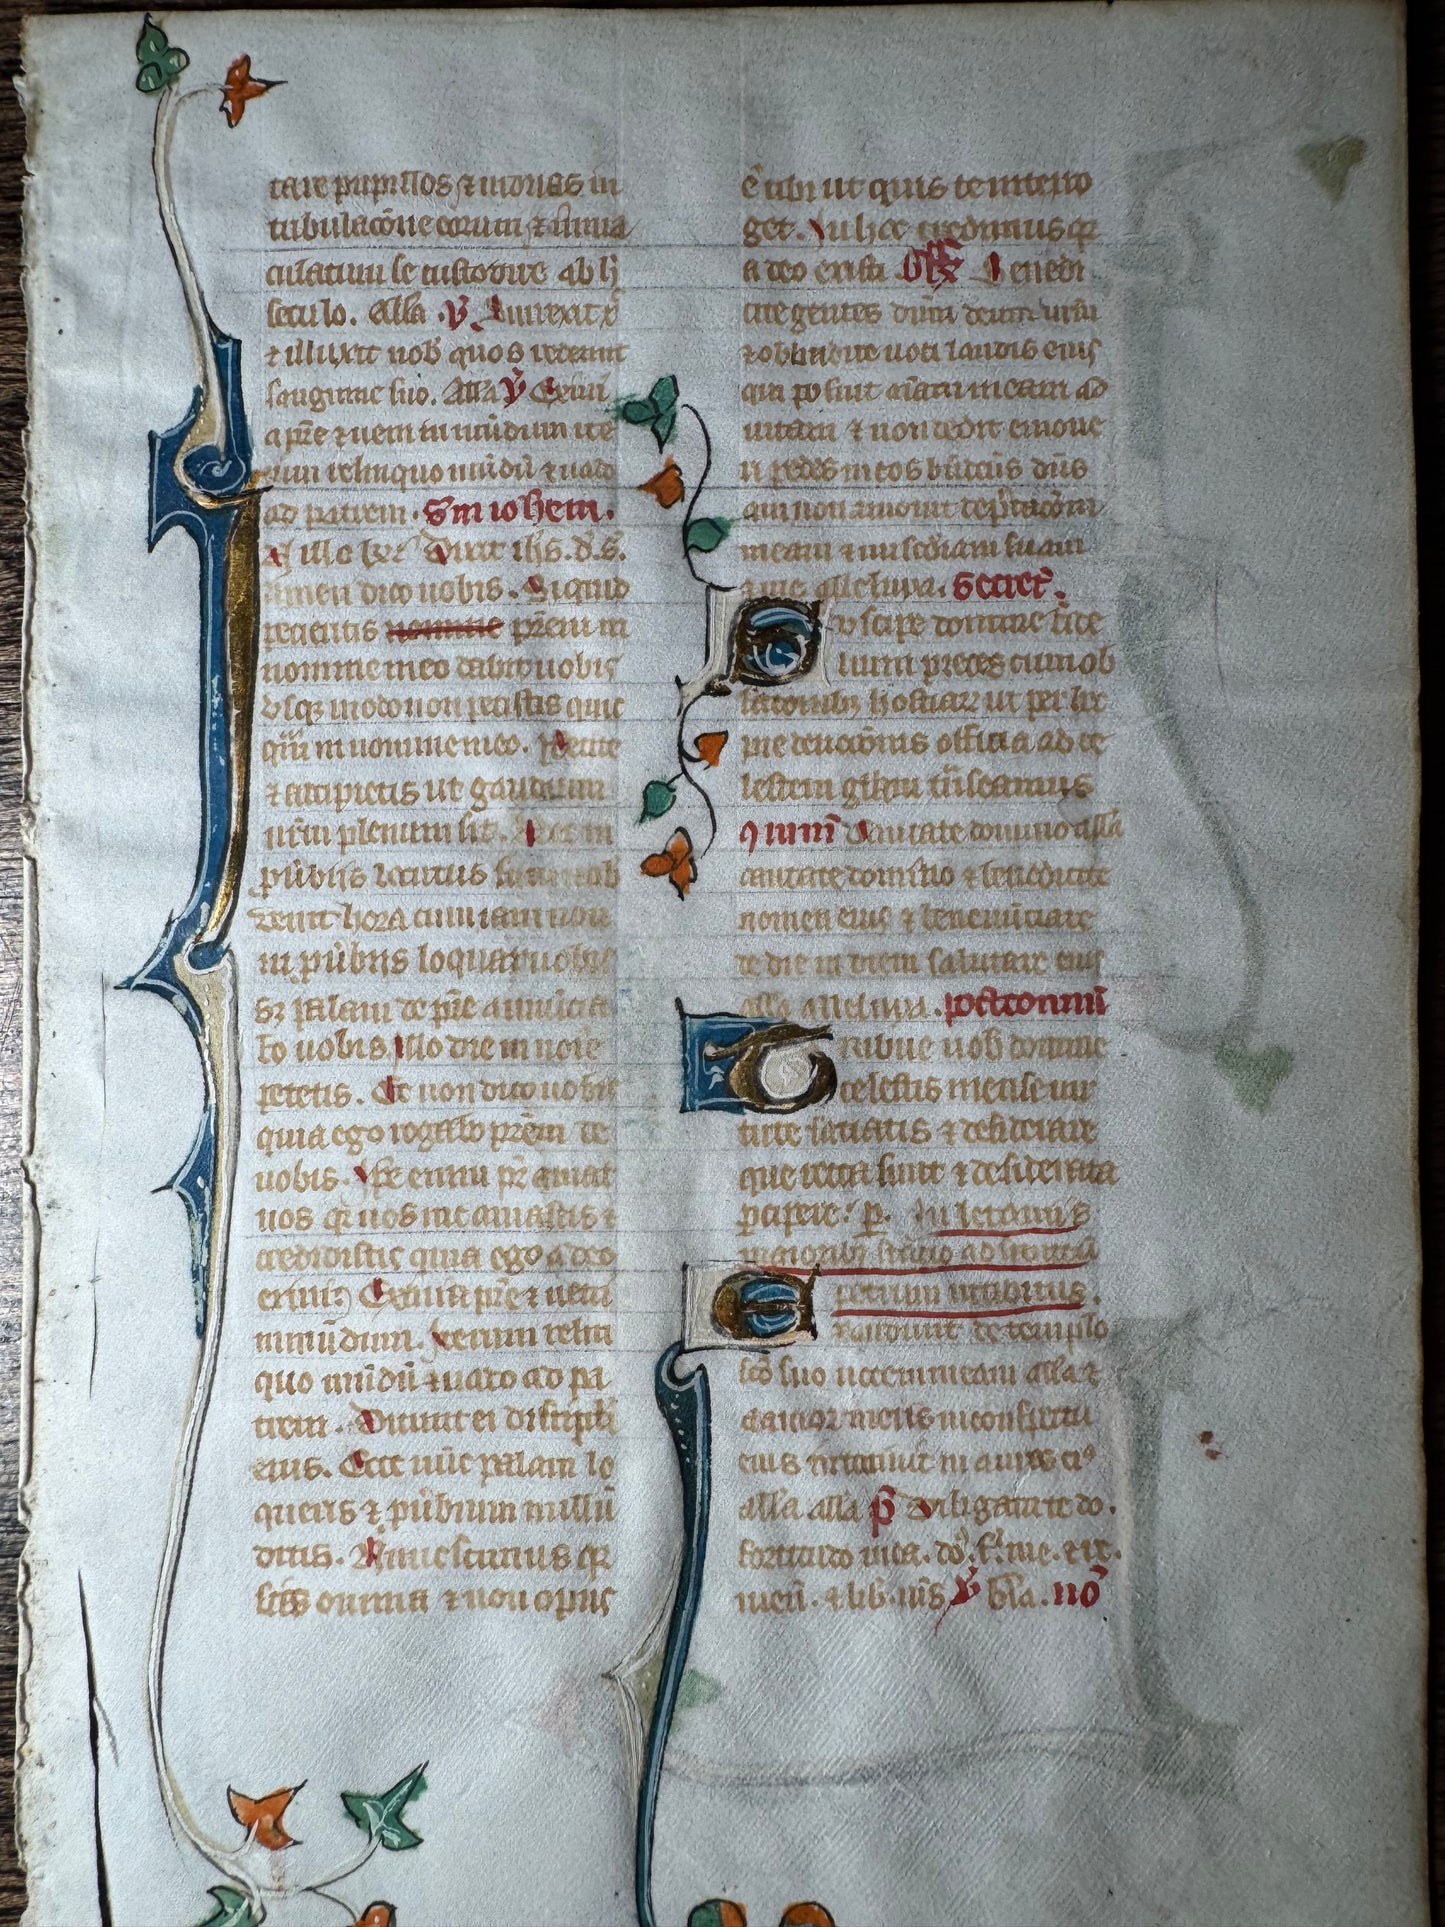 tare pupillos ⁊ uiduas in
tribulacōne eorum ⁊ Inma
culatum se custodire ab h̄
seculo. Alla. ℣. Surrexit xp̄
⁊ illuxit nob̄ quos redemit
sanguine suo. Alla ℣ Exiui
a pr̄e ⁊ ueni in mūdum ite
rum relinquo mūdū ⁊ uado
ad patrem. Sm̄ ioh̄em.
In illo tpr̄e Dixit ihs. d. s.
Amen dico uobis. Siquid
petieritis nomine pr̄em in
nomine meo dabit uobis
Usq̨ modo non petistis quic
q̄m in nomine meo. Petite
⁊ accipietis ut gaudium
ur̄m plenum sit. Hec in
pūbiis locutus sum uob̄
Venit hora cum iam non
in pūbiis loquar uobis
sꝫ palam de pr̄e annūcia
bo uobis Illo die in noīe
petetis. Et non dico uobis
quia ego rogabo pr̄em de
uobis. Ipse enim pr̄ amat
uos qr̄ uos me amastis ⁊
credidistis quia ego a deo
exiui Exiui a pr̄e ⁊ ueni
in mūdum. Iterum relin
quo mūdū ⁊ uado ad pa
trem. Dicunt ei discipl̄i
eius. Ecce nūc palam lo
queris ⁊ pūbium nullū
dicis. Nunc scimus qr̄
scis omnia ⁊ non opus
ē tibi ut quis te interro
get. In hoc credimus qr̄
a deo existi. Off̄ Benedi
cite gentes dn̄m deum ur̄m
⁊ obaudite uoci laudis eius
qui posuit aīam meam ad
uitam ⁊ non dedit cōmoue
ri pedes meos bn̄dcūs dn̄s
qui non amouit dep̄cacōm̄
meam ⁊ mīscdiam suam
a me alleluya. Secret̄.
Suscipe domine fide
lium preces cum ob
lacionibꝫ hostiarꝝ ut per hec
pie deuocōnis officia ad ce
lestem gl̄iam trāseamus
9mūī Cantate domino alla
cantate domino ⁊ benedicite
nomen eius ⁊ bene nūciate
de die in diem salutare eius
alla alleluya. postcommū
Tribue nob̄ domine
celestis mense uir
tute saciatis ⁊ desiderare
que recta sunt ⁊ desiderata
ꝑcipere. ꝑ. In letaniis
maioribꝫ stacio ad sanctū
petrum
Exaudiuit de templo
scō suo uocem meam alla ⁊
clamor meus in conspectu
eius introiuit in aures eiꝰ
alla alla p̄ Diligam te do.
fortitudo mea. do. f. me. ⁊ re.
meū. ⁊ lib. m̄s ℣ gl̄a. nō